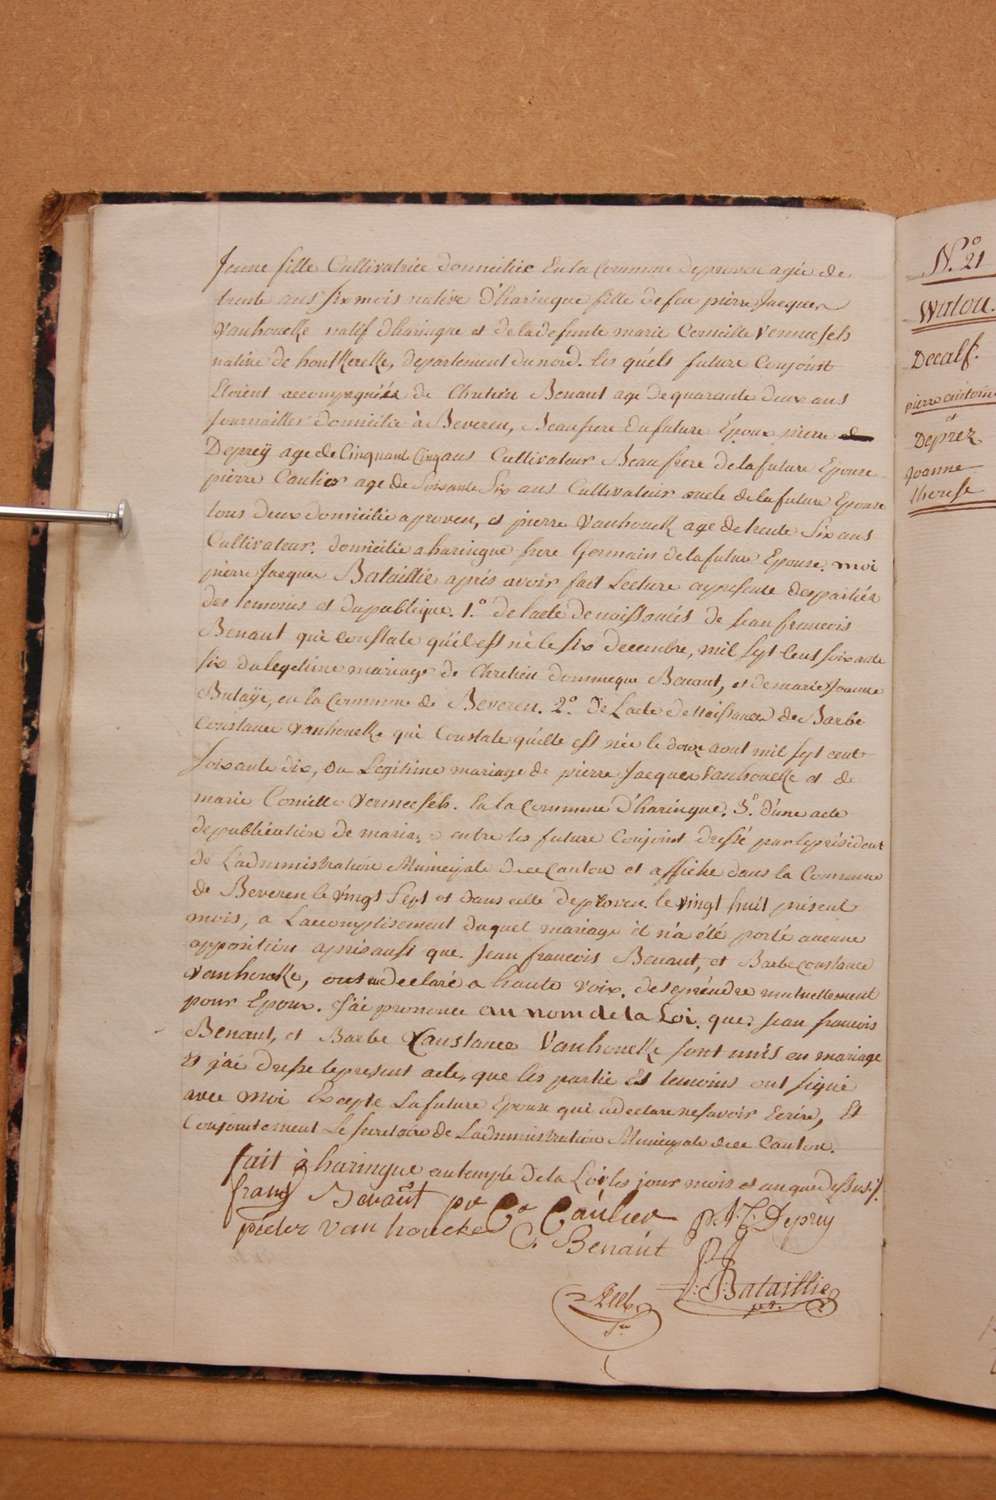 Jeune fille Cultivatrice domicilie En la Commune deproven agée de
trente ans six mois native d'haringue fille de feu pierre Jacques
vanhoucke natif dharingue et de la defunte marie Cornille vermeesch
native de houtkercke, departement du nord. les quels future Conjoint
Etoient accompagnées de Chretien Benaut age de quarante deux ans
Journaillier domicilie à Beveren, Beaufrere du future Époux pierre
Depreÿ age de Cinquant Cinq ans Cultivateur Beau frere de la future Epouse
pierre Caulier age de Soixante Six ans Cultivateur oncle de la future Epouse
tous deux domicilie a proven, et pierre Vanhouck age de trente Six ans
Cultivateur. domicilie a haringue frere Germain de la future Epouse. moi
pierre Jacques Bataillie après avoir fait Lecture en presence des parties
des temoins et du publique. 1.o de l'acte de naissances de Jean francois
Benaut qui constate qu'il est né le six decembre, mil sept Cent soixante
six du legitime mariage de Chretien dominique Benaut, et de marie Joanne
Butaÿe, en la Commune de Beveren. 2.o De L'acte de Naissance de Barbe
Constance vanhoucke qui Constate quelle est née le douze aout mil sept cent
soixante dix, du Legitime mariage de pierre Jacques Vanhoucke et de
marie Cornille vermeesch. En la Commune d'haringue. 3.o d'une acte
de publication de mariage entre les future Conjoint dressé par le président
de L'administration Municipale de ce Canton et affiche dans la Commune
de Beveren le vingt Sept et dans celle de proven le vingt huit présent
mois, a L'accomplissement duquel mariage il n'a été porté aucune
opposition après aussi que Jean francois Benaut, et Barbe constance
vanhoucke, ont declaré a haute voix. de se prendre mutuellement
pour Epoux. J'ai prononce au nom de la Loi. que. Jean francois
Benaut, et Barbe Constance Vanhoucke sont unis en mariage
et j'ai dresse le present acte, que les partie Et temoins ont signé
avec moi Excepte La future Epouse qui a declare ne savoir Ecrire, Et
Conjointement Le secretaire de L'administration Municipale de ce Canton.
fait à haringue au temple de la Loi les jour mois et an que dessus
frans Benaut pr Co Caulier P: J: Deprey
pieter van houcke C: Benaut
P: J: Bataillie
pr.
N.o 21
Watou.
Decalf.
pierre antoine
et
Deprez
Joanne
therese